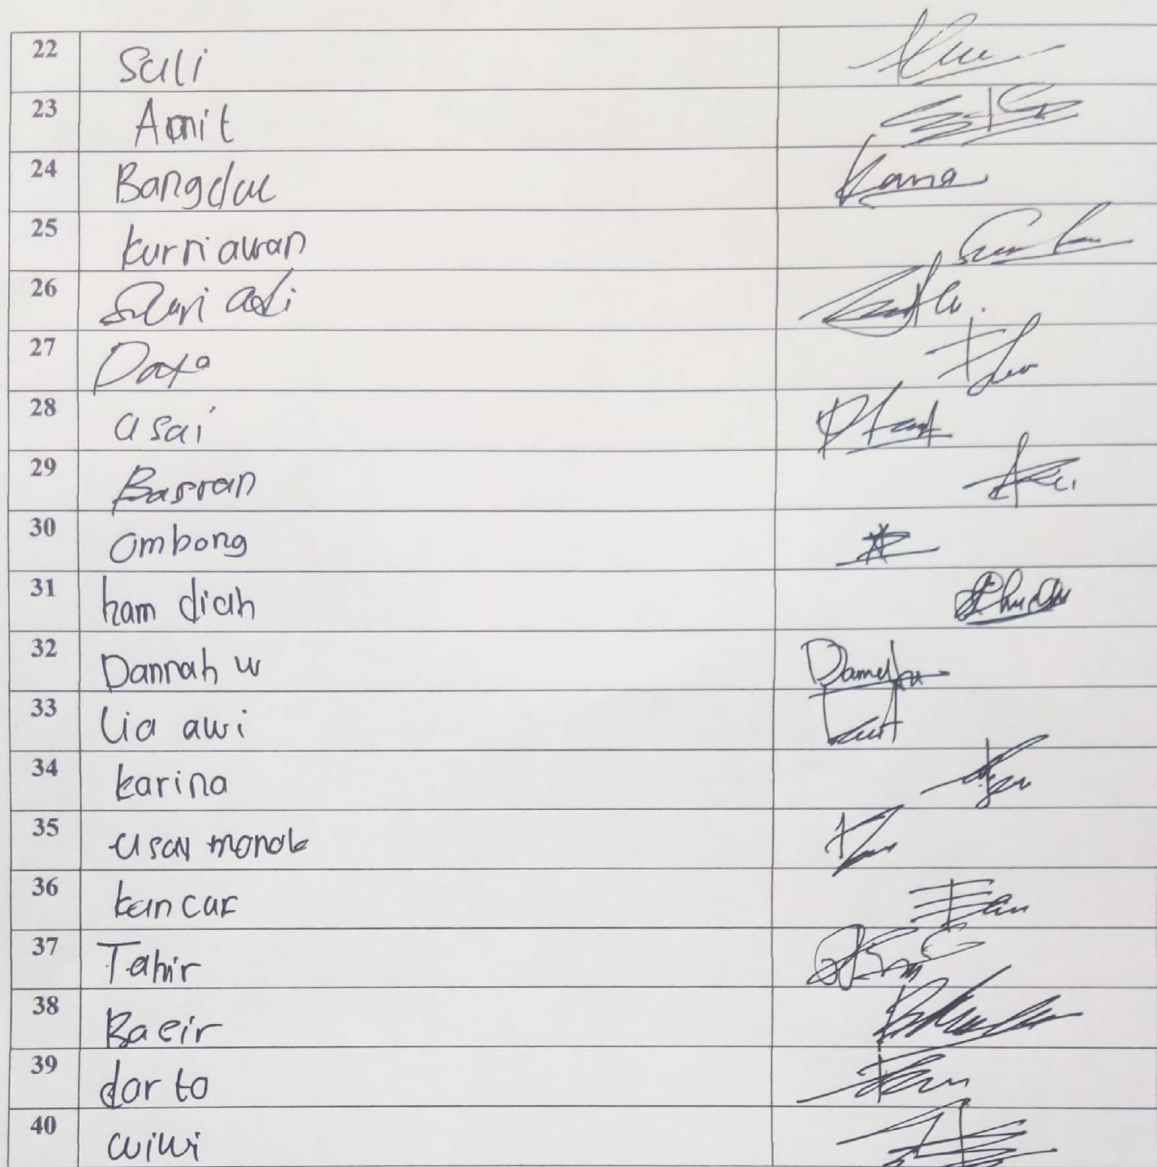 22 Sali
23 Amit
24 Bangdul Kana
25 kurniawan
26
27 Dato
28 asai
29 Basran
30 Ombong
31 ham diah
32 Dannah w
33 Lia awi
34 karina
35 usay monok
36 kancar
37 Tahir
38 Baeir
39 darto
40 wiwi